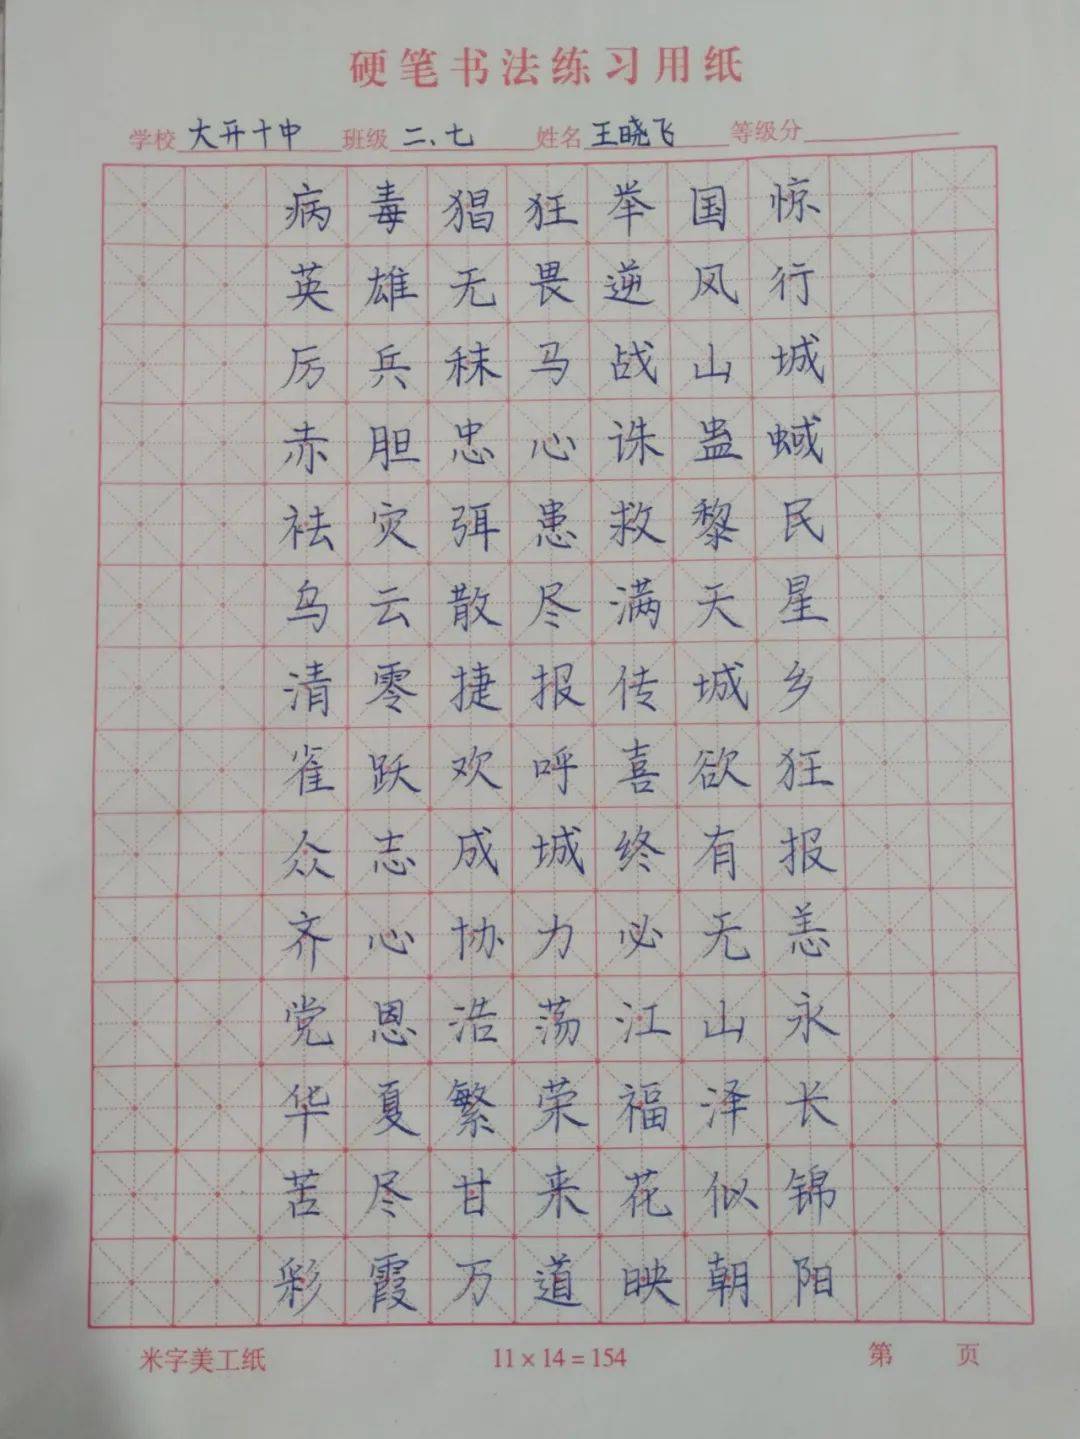 硬笔书法练习用纸
学校 大开十中 班级 二、七 姓名 王晓飞 等级分
病毒猖狂举国惊
英雄无畏逆风行
厉兵秣马战山城
赤胆忠心诛蛊蜮
祛灾弭患救黎民
乌云散尽满天星
清零捷报传城乡
雀跃欢呼喜欲狂
众志成城终有报
齐心协力必无恙
党恩浩荡江山永
华夏繁荣福泽长
苦尽甘来花似锦
彩霞万道映朝阳
米字美工纸 11×14=154 第 页